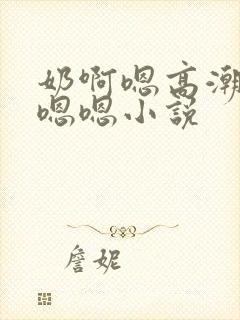 奶啊嗯高潮
嗯嗯小說
詹妮